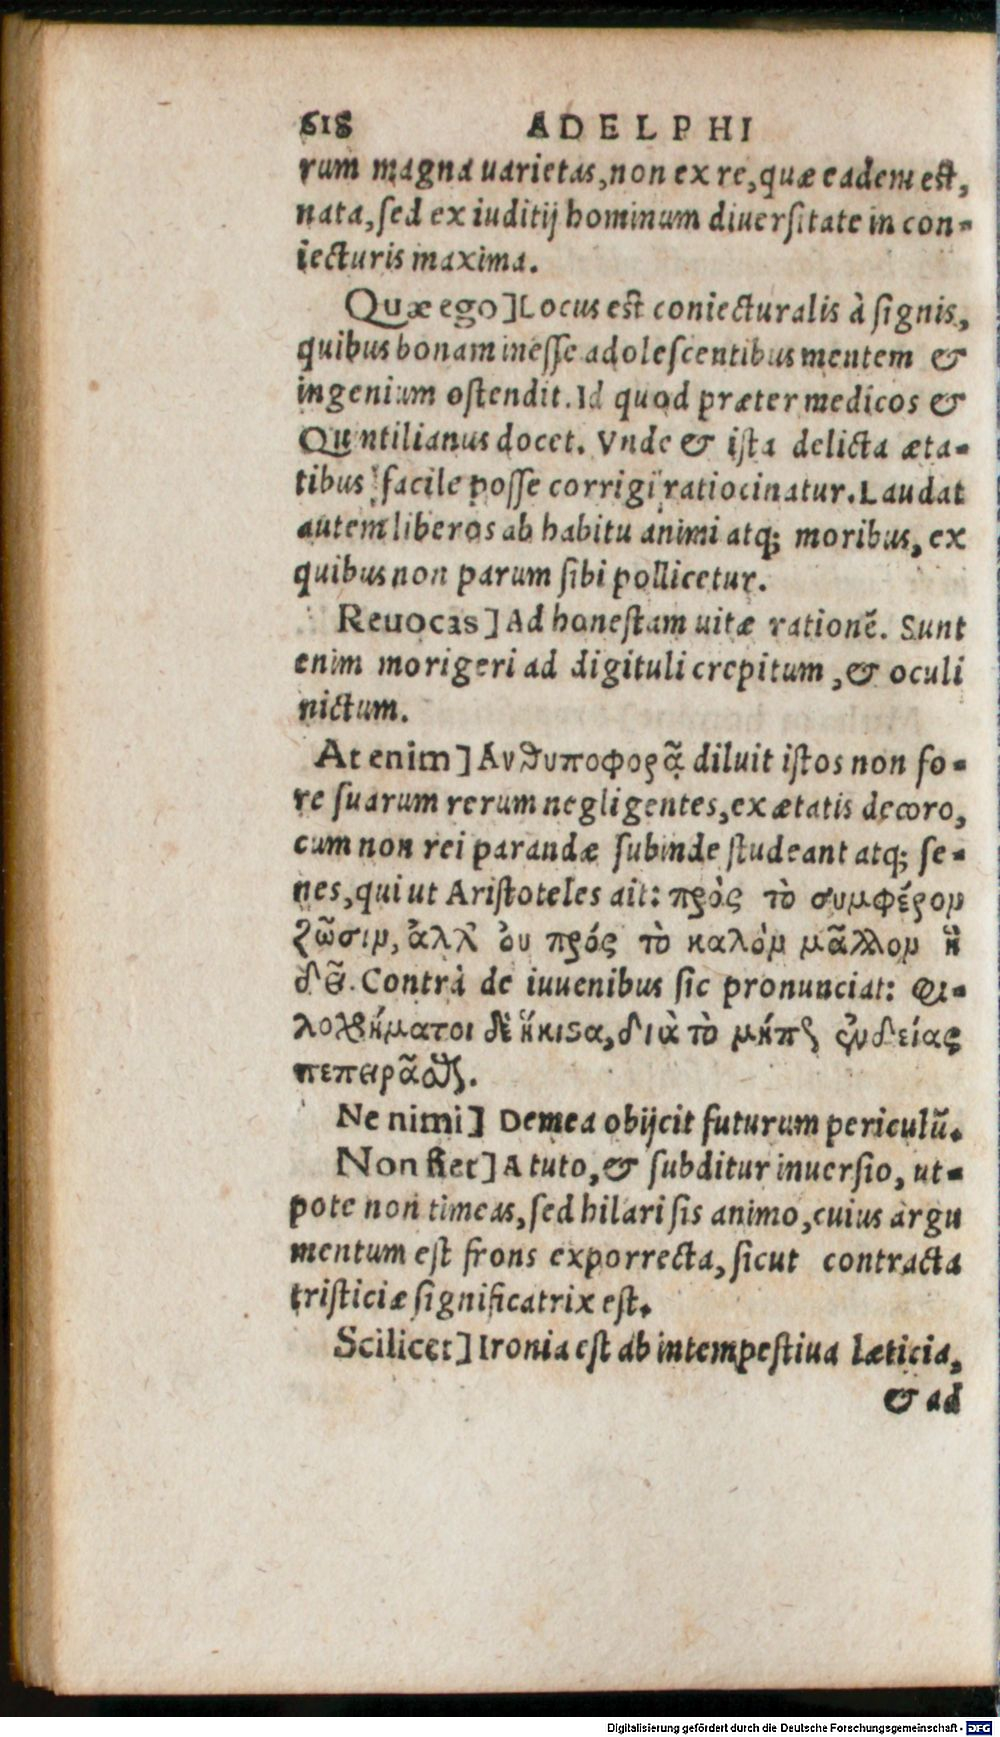 618 ADELPHI
rum magna uarietas, non ex re, quæ eadem est,
nata, sed ex iuditij hominum diuersitate in con-
iecturis maxima.
Quæ ego] Locus est coniecturalis à signis,
quibus bonam inesse adolescentibus mentem &
ingenium ostendit. Id quod præter medicos &
Quintilianus docet. Vnde & ista delicta æta-
tibus facile posse corrigi ratiocinatur. Laudat
autem liberos ab habitu animi atq; moribus, ex
quibus non parum sibi pollicetur.
Reuocas] Ad honestam uitæ rationẽ. Sunt
enim morigeri ad digituli crepitum, & oculi
nictum.
At enim] Ανθυποφορᾷ diluit istos non fo-
re suarum rerum negligentes, ex ætatis decoro,
cum non rei parandæ subinde studeant atq; se-
nes, qui ut Aristoteles ait: πρὸς τὸ συμφέρον
ζῶσιν, ἀλλ' ὀυ πρός τὸ καλὸν μᾶλλον ἢ
δεῖ. Contrà de iuuenibus sic pronunciat: Φι-
λοχρήματοι δὲ ἥκιστα, διὰ τὸ μήπω ἐνδείας
πεπειρᾶσθαι.
Ne nimi] Demea obijcit futurum periculũ.
Non fiet] A tuto, & subditur inuersio, ut-
pote non timeas, sed hilari sis animo, cuius argu
mentum est frons exporrecta, sicut contracta
tristiciæ significatrix est.
Scilicet] Ironia est ab intempestiua læticia,
& ad
Digitalisierung gefördert durch die Deutsche Forschungsgemeinschaft - DFG